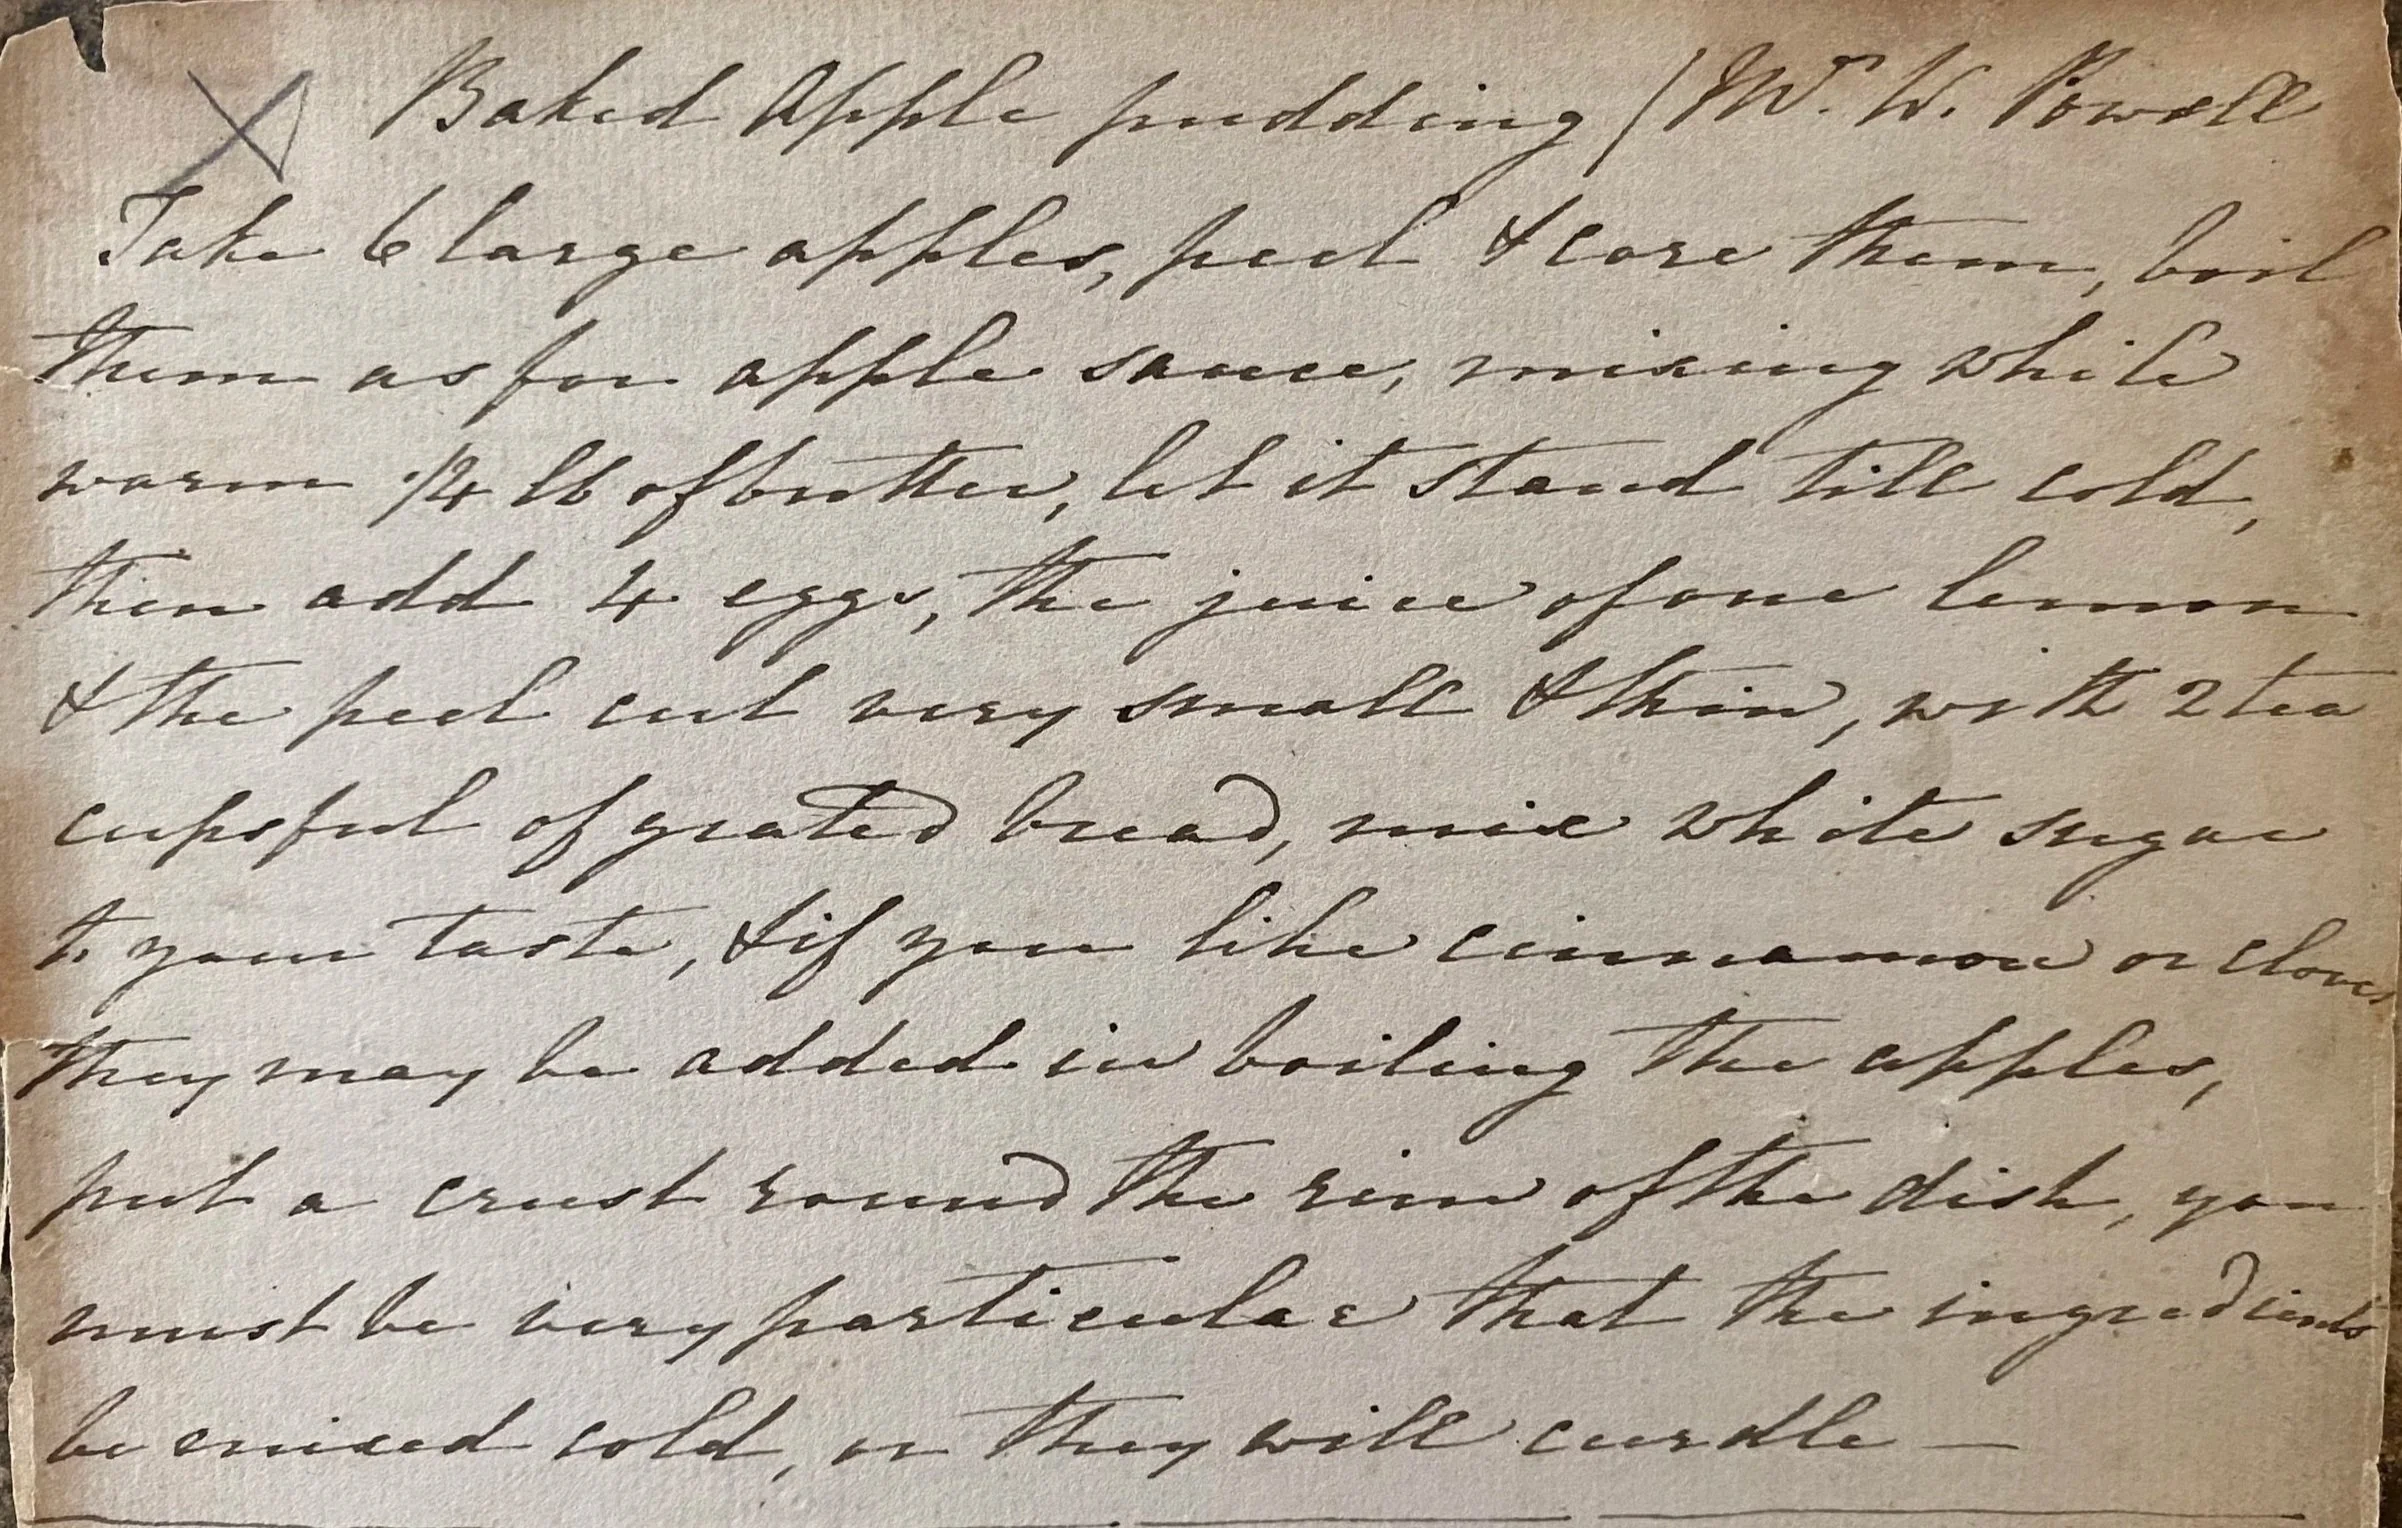 Baked Apple pudding / Mr. W. Powell
Take 6 large apples, peel & core them, boil
them as for apple sauce, mixing while
warm 1/4 lb of butter, let it stand till cold,
then add 4 eggs, the juice of one lemon
& the peel cut very small & thin, with 2 tea
cupsful of grated bread, mix white sugar
to your taste, & if you like cinnamon or cloves
they may be added in boiling the apples,
put a crust round the rim of the dish, you
must be very particular that the ingredients
be mixed cold, or they will curdle —